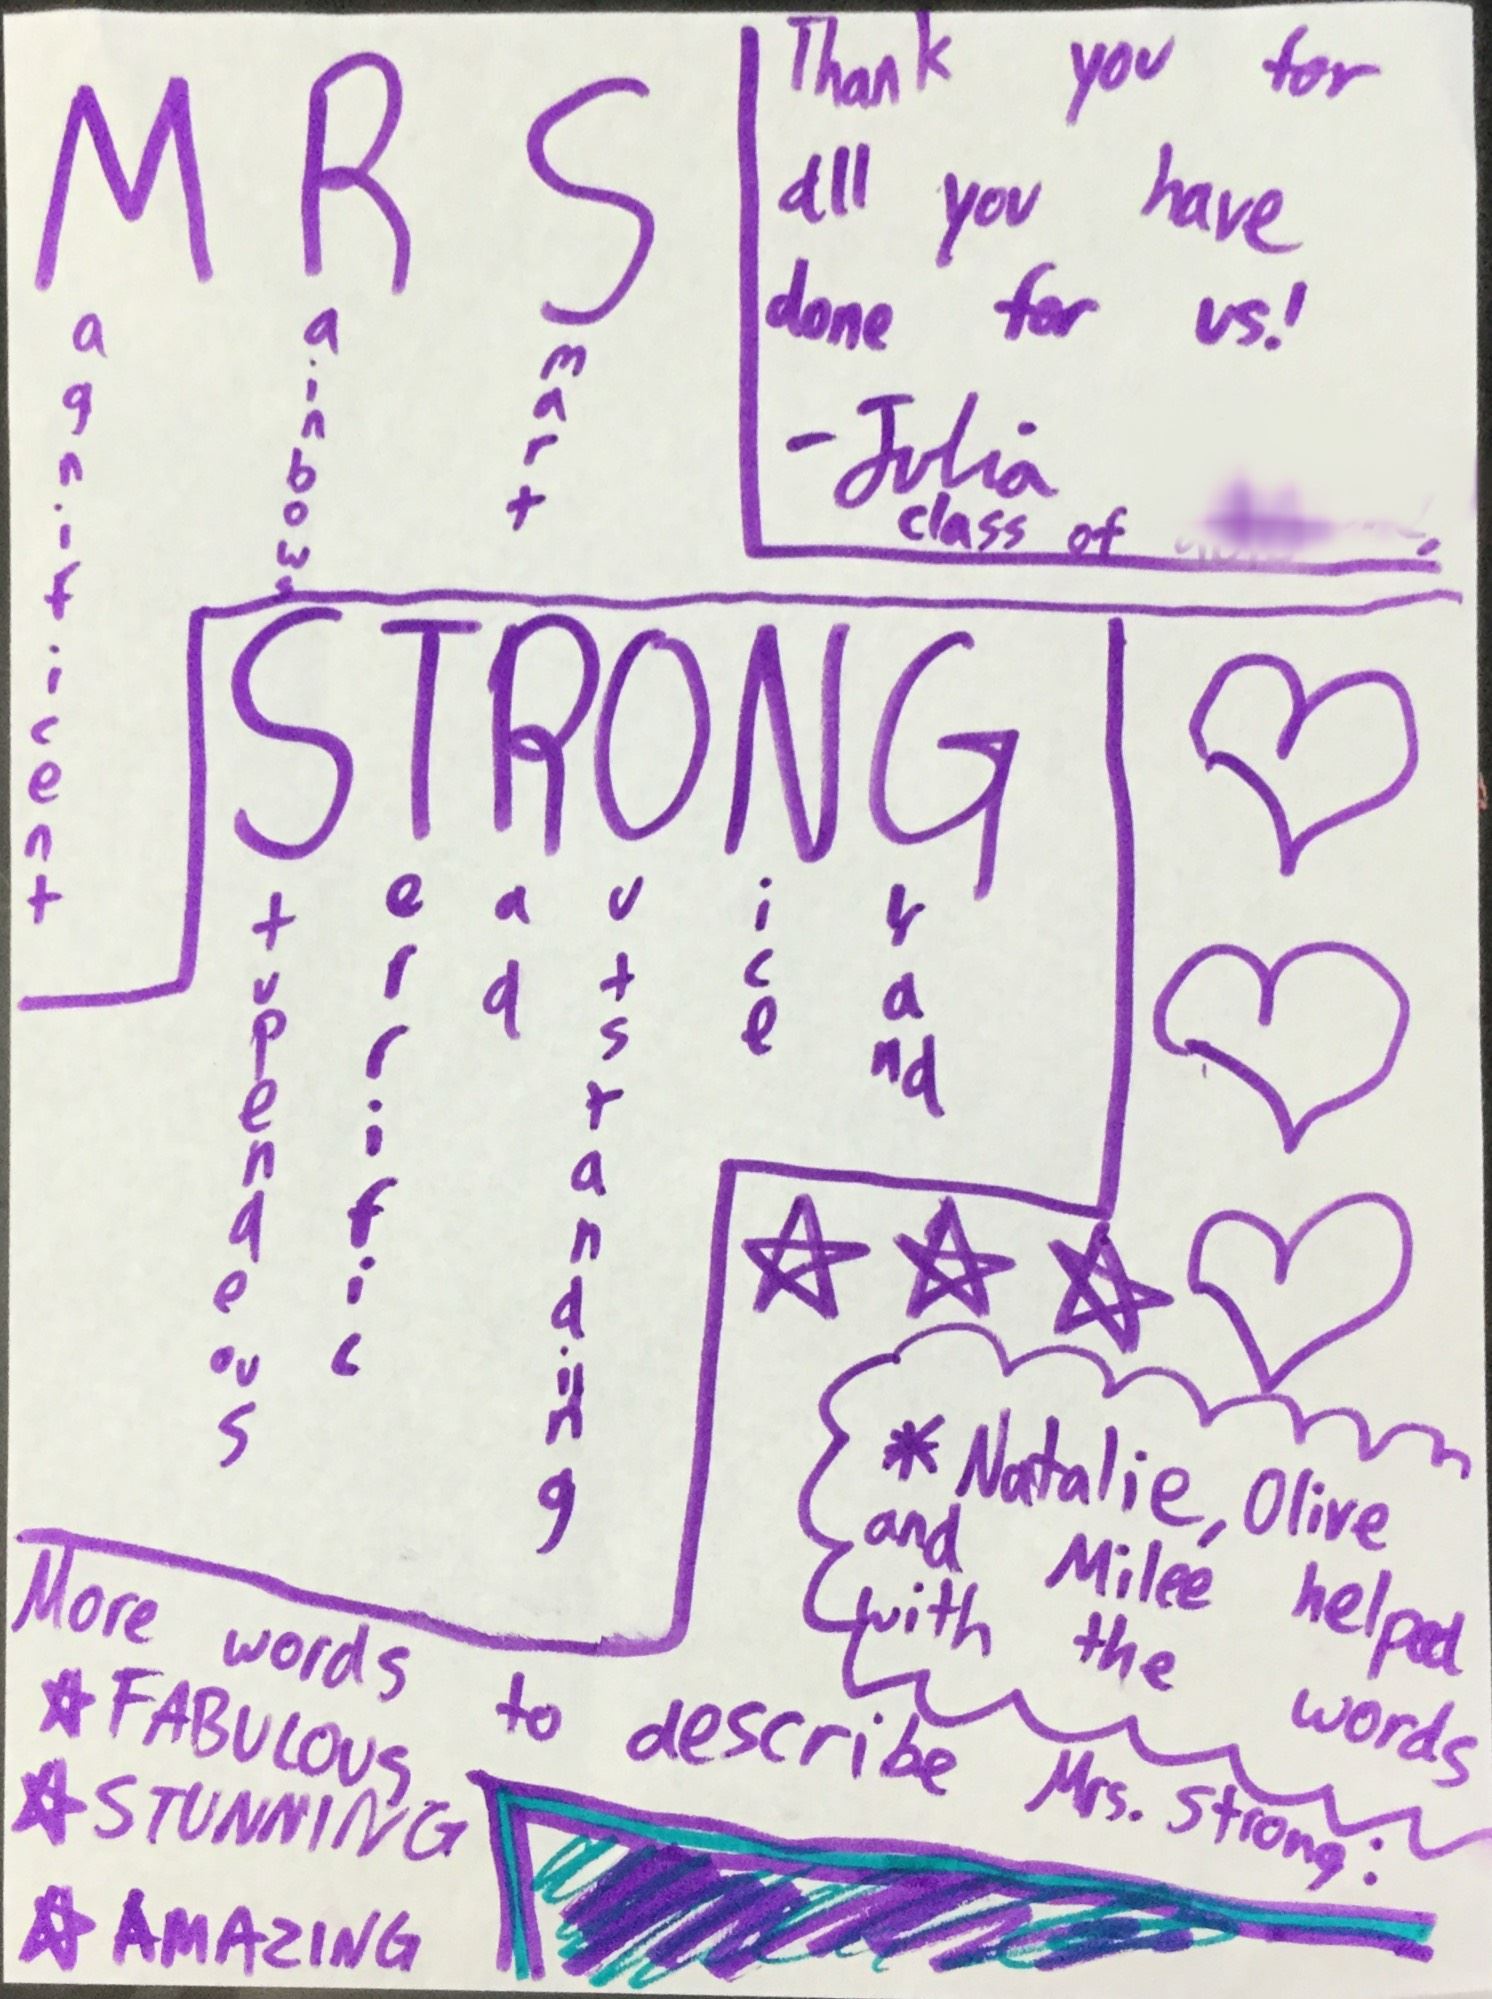 MRS
Magnificent
Rainbows
Smart
Thank you for
all you have
done for us!
-Julia
class of
STRONG
Stupendeous
Terrific
Rad
Outstranding
Nice
Grand
* Natalie, Olive
and Mileé helped
with the words
More words to describe Mrs. Strong:
FABULOUS
STUNNING
AMAZING